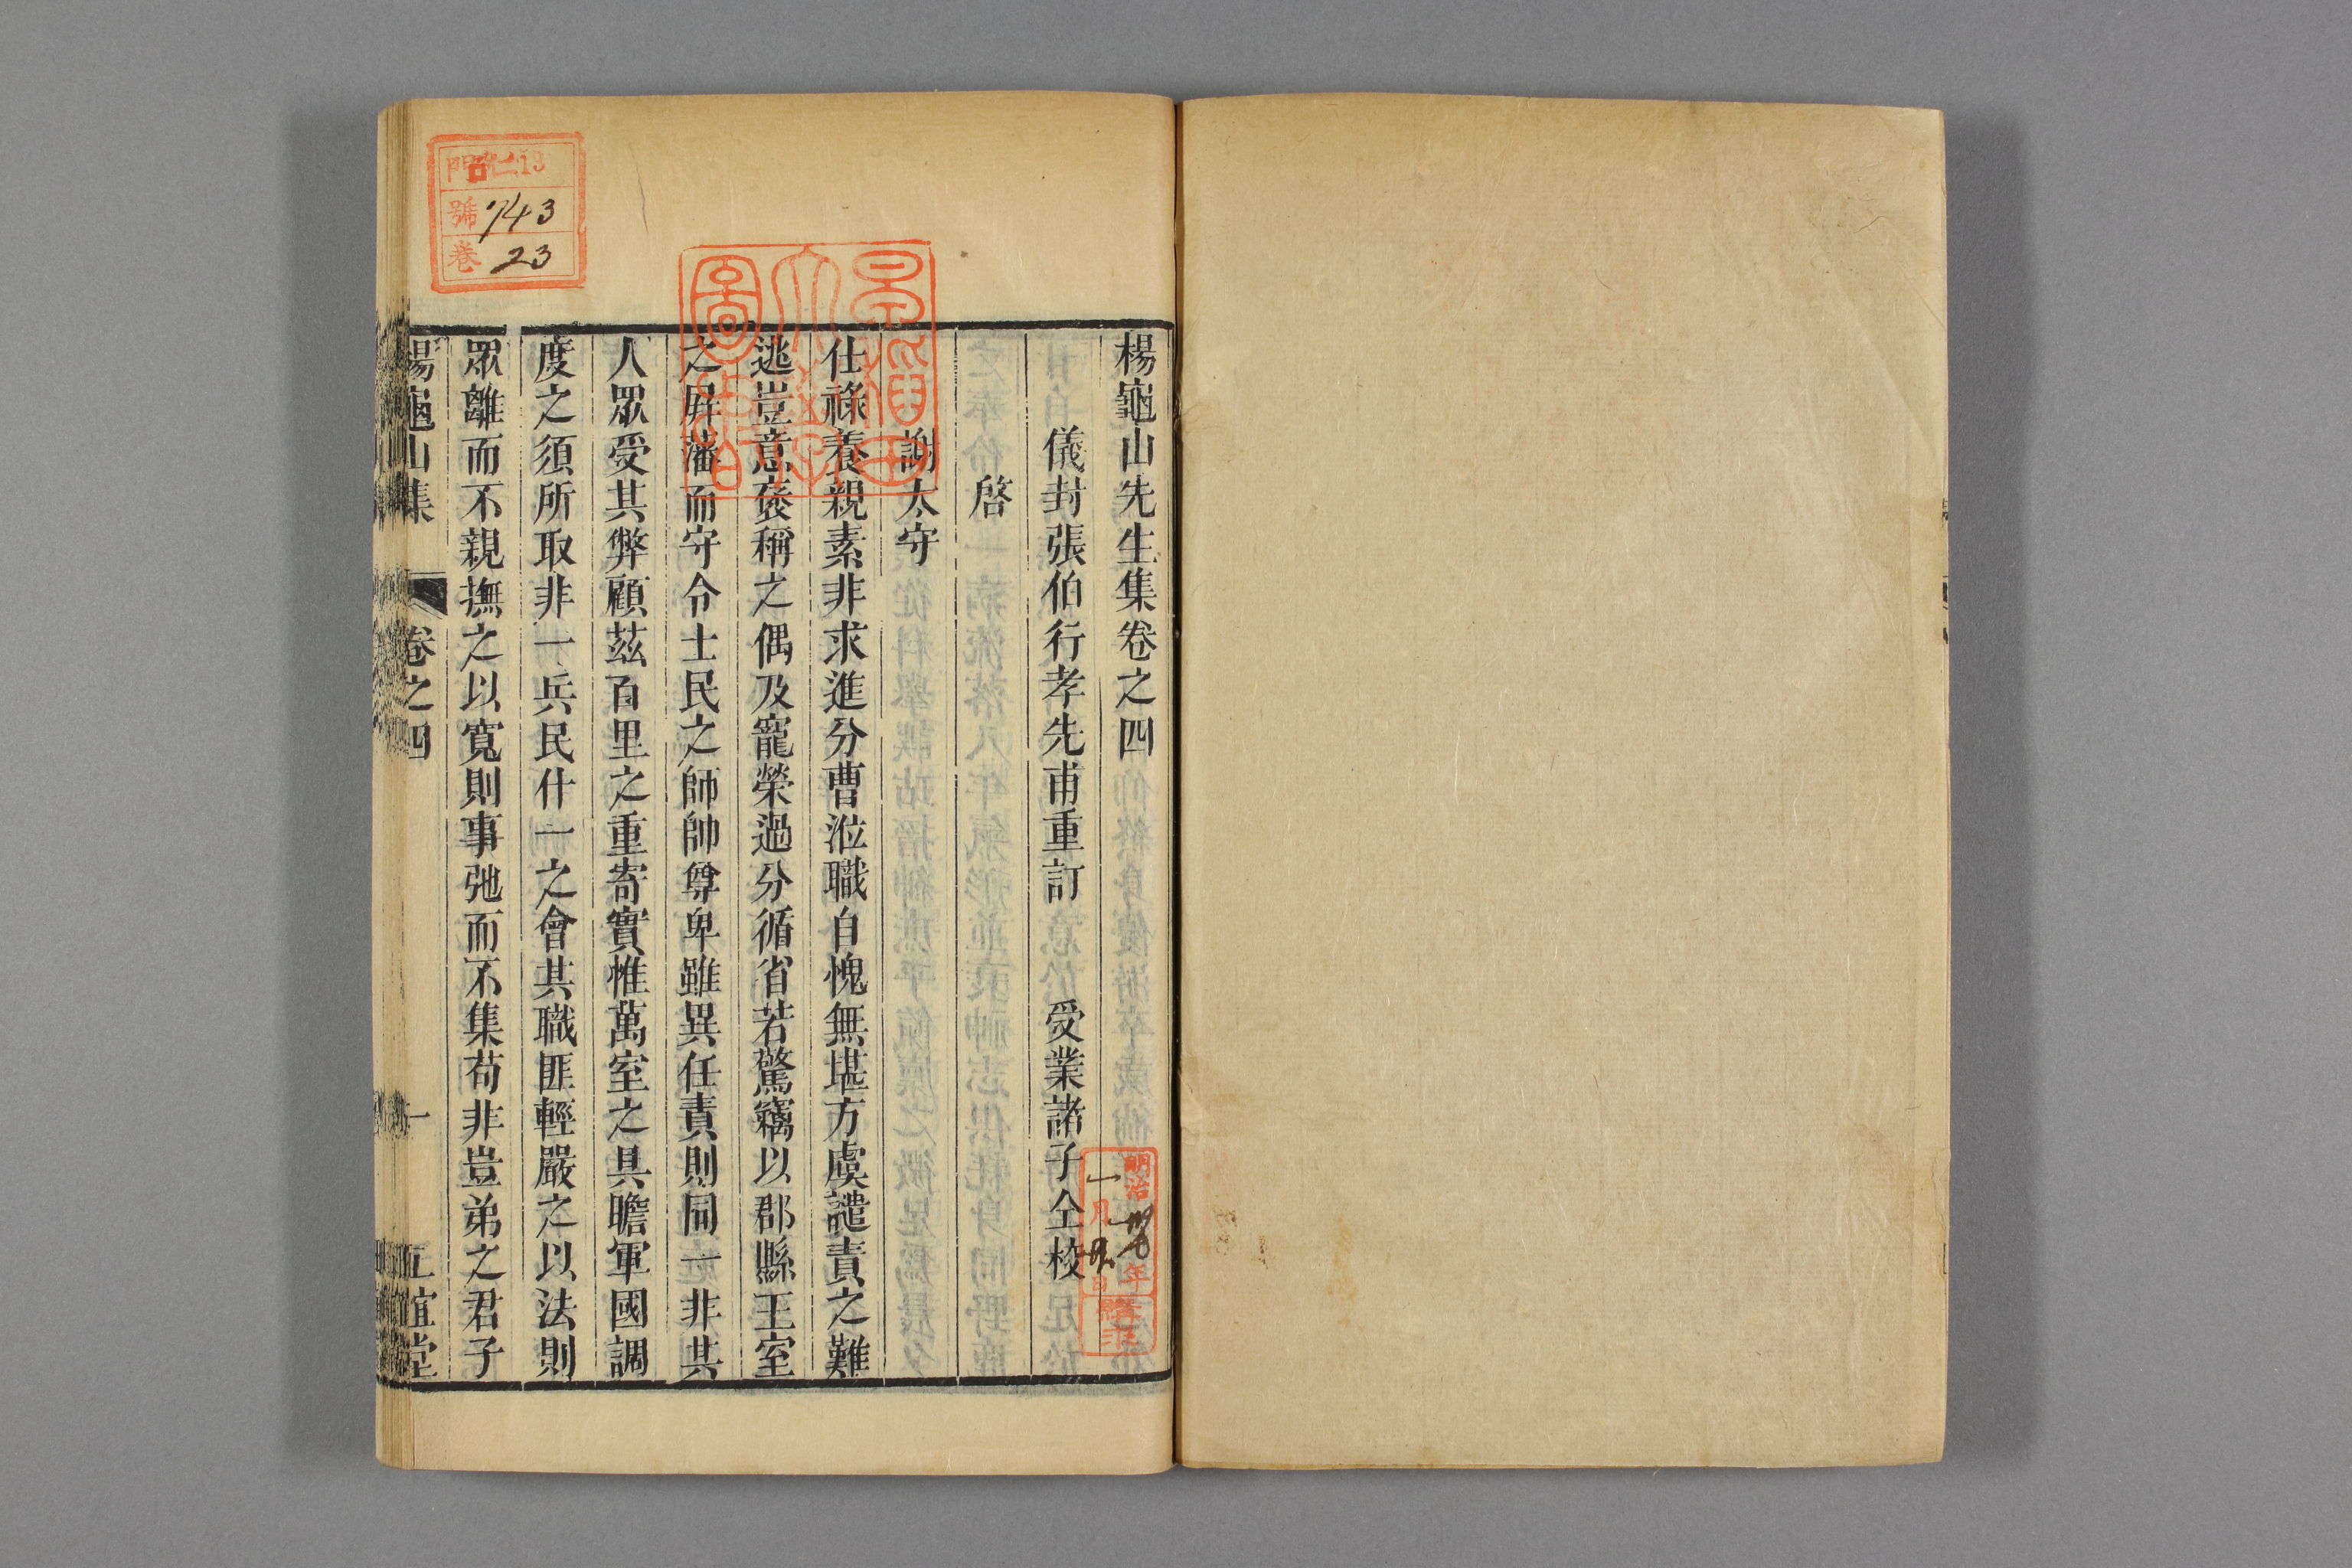 楊龜山先生集卷之四
儀封張伯行孝先甫重訂 受業諸子仝校
啓
謝太守
仕祿養親素非求進分曹涖職自愧無堪方虞譴責之難
逃豈意褒稱之偶及寵榮過分循省若驚竊以郡縣王室
之屏藩而守令士民之師帥尊卑雖異任責則同一非其
人眾受其弊顧茲百里之重寄實惟萬室之具瞻軍國調
度之須所取非一兵民什一之會其職匪輕嚴之以法則
眾離而不親撫之以寬則事弛而不集苟非豈弟之君子
楊龜山集 卷之四 一 正誼堂
門 13
號 743
卷 23
明治 年
一月 日
購求